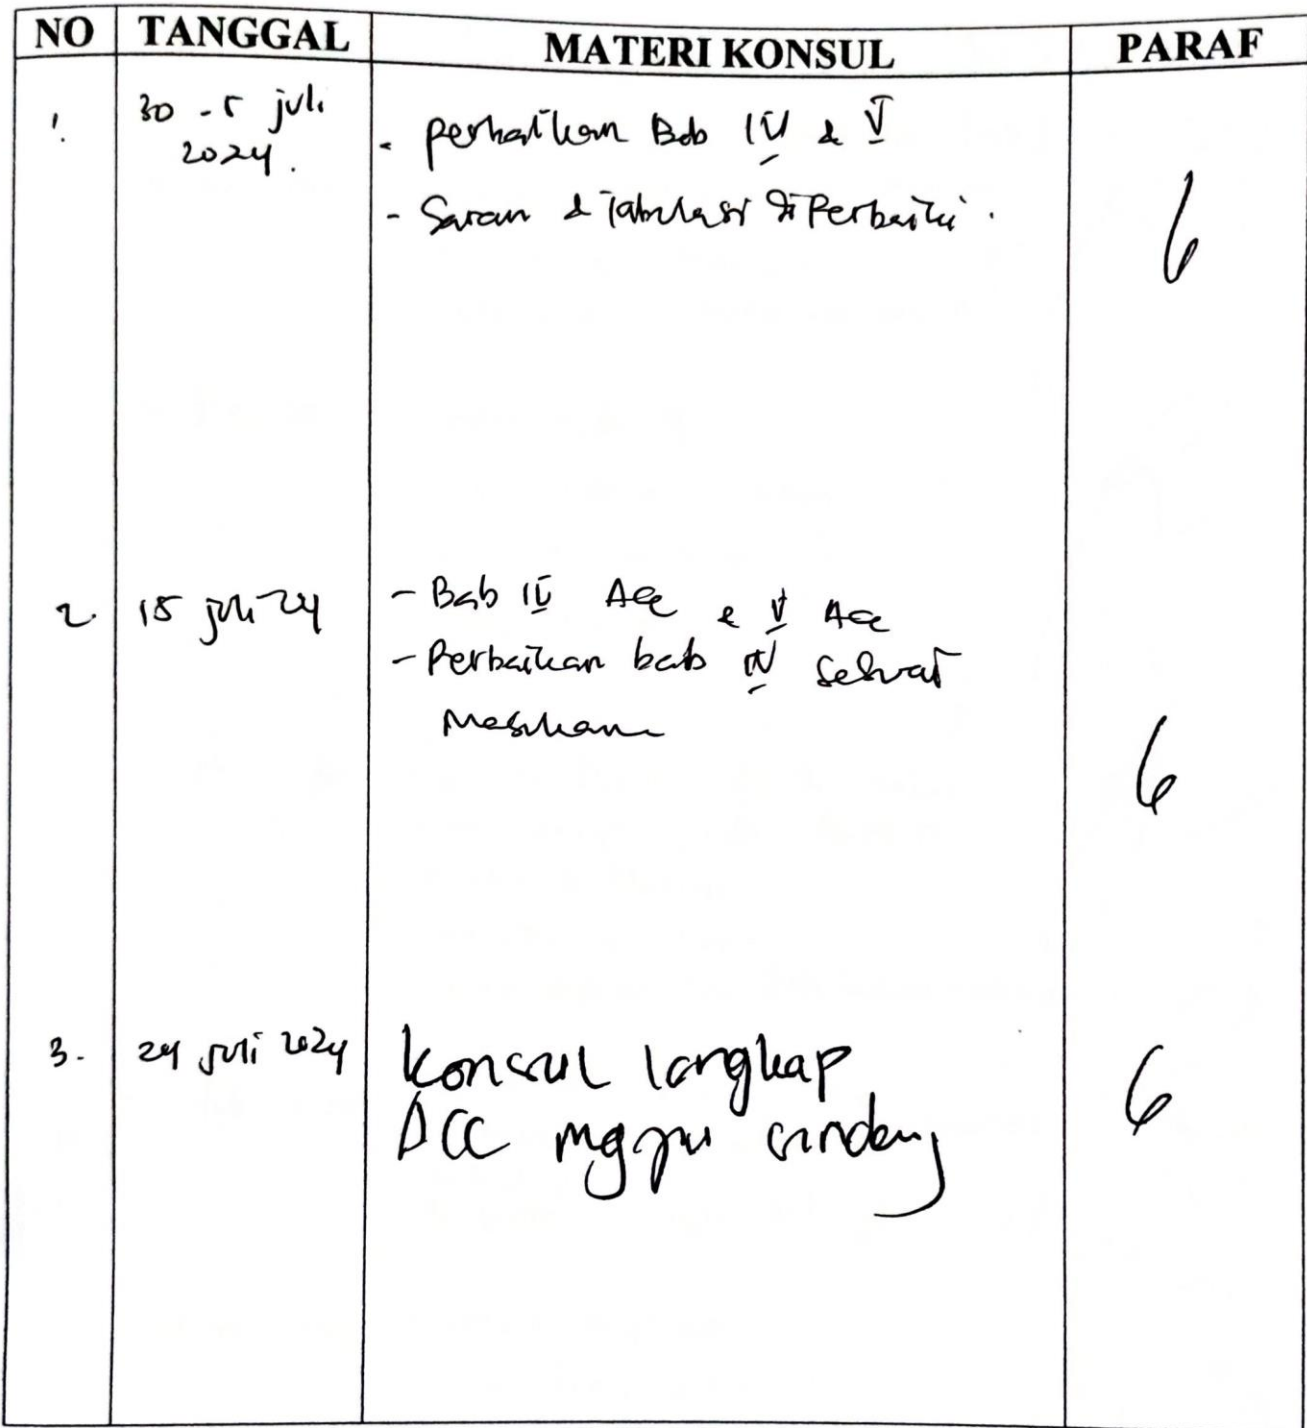 NO TANGGAL MATERI KONSUL PARAF
1. 30 - 5 juli
2024.
- Perbaikan Bab IV & V
- Saran & Tabulasi diPerbaiki.
2. 15 juli 24
- Bab IV Acc & V Acc
- Perbaikan bab IV sesuai
Masukan
3. 24 juli 2024
Konsul lengkap
ACC maju sidang